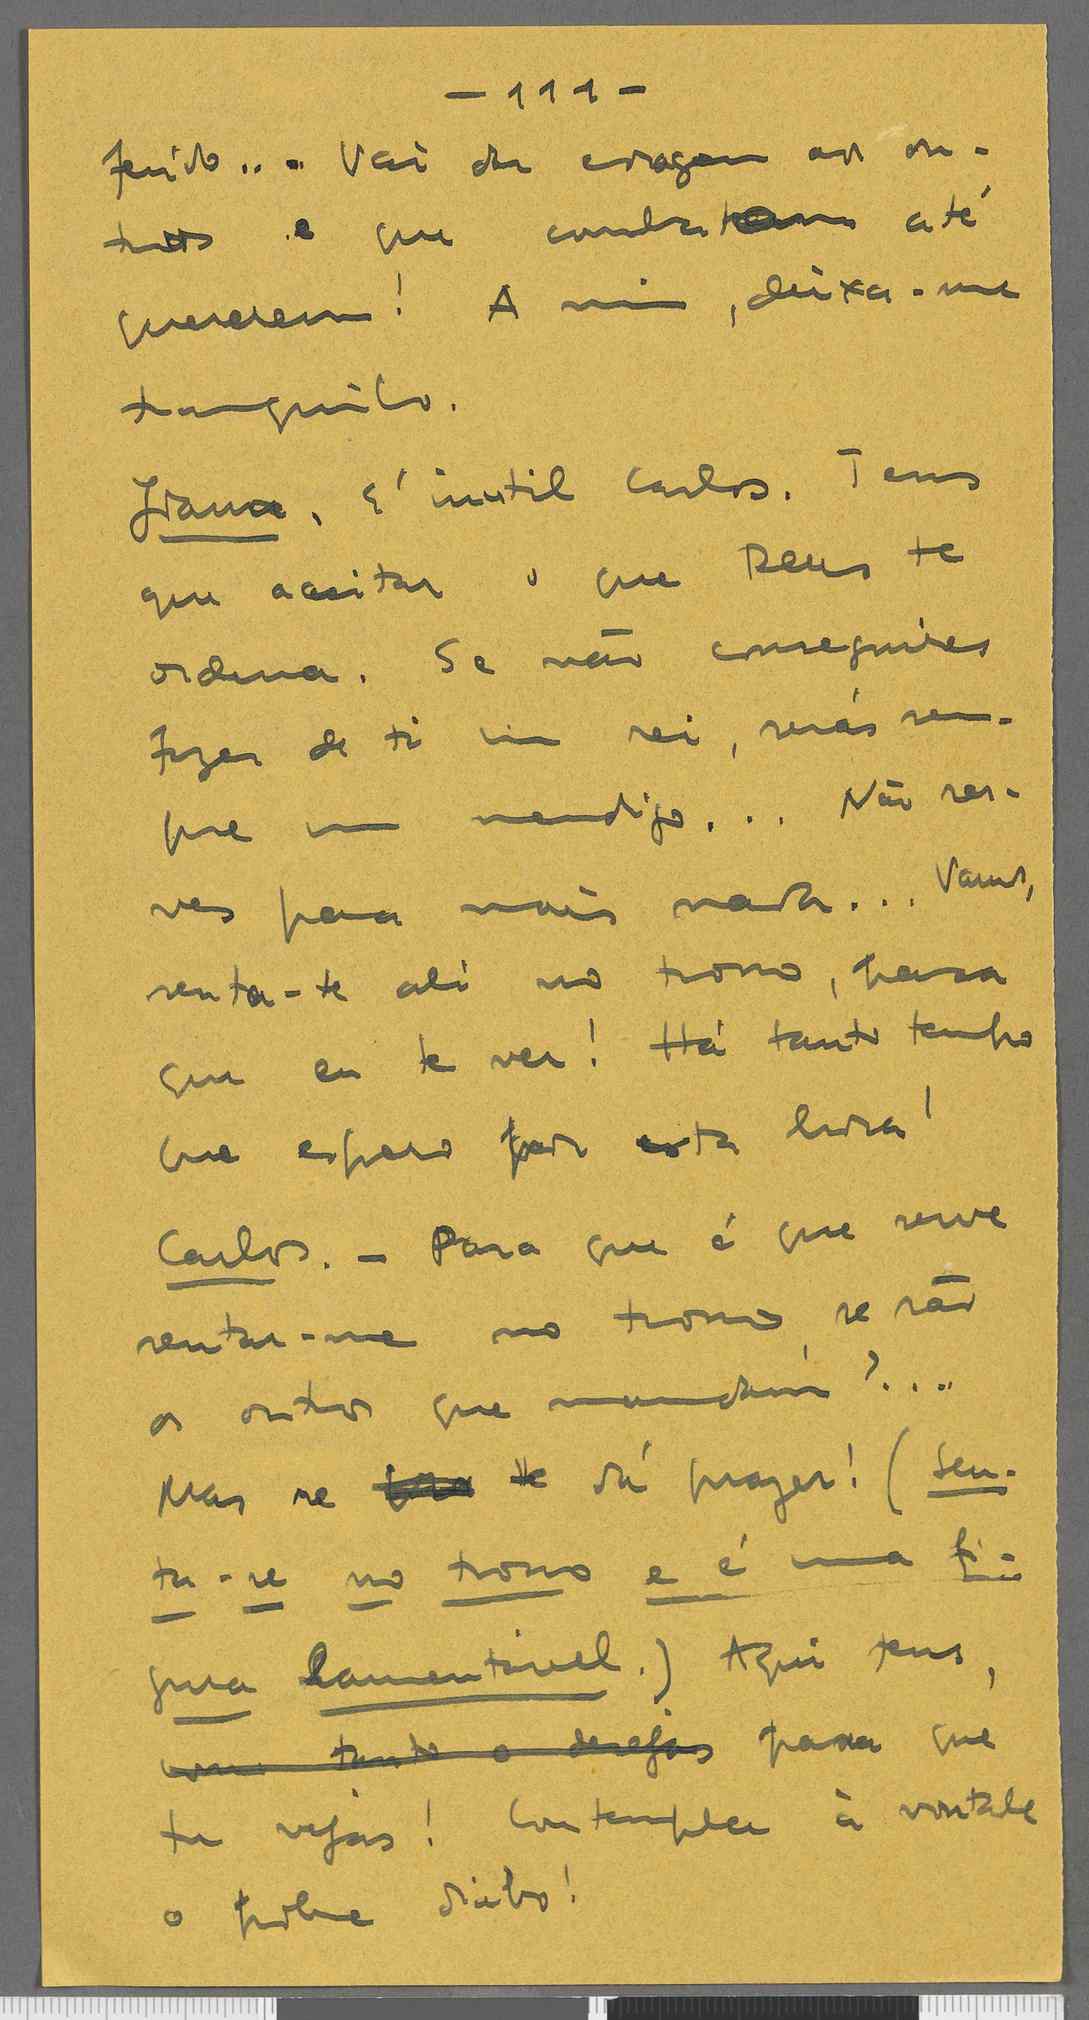 - 111 -
ferido... Vai dar coragem aos ou-
tros e que combatam até
quererem! A mim, deixa-me
tranquilo.
Joana. É inutil Carlos. Tens
que aceitar o que Deus te
ordena. Se não conseguires
fazer de ti um rei, serás sem-
pre um mendigo... Não ser-
ves para mais nada... Vamos,
senta-te ali no trono, para
que eu te ver! Há tanto tempo
que espero por esta hora!
Carlos. - Para que é que serve
sentar-me no trono, se são
os outros que mandam?...
Mas se te dá prazer! (Sen-
ta-se no trono e é uma fi-
gura lamentável.) Aqui tens,
como tanto o desejas para que
tu vejas! Contempla à vontade
o pobre diabo!